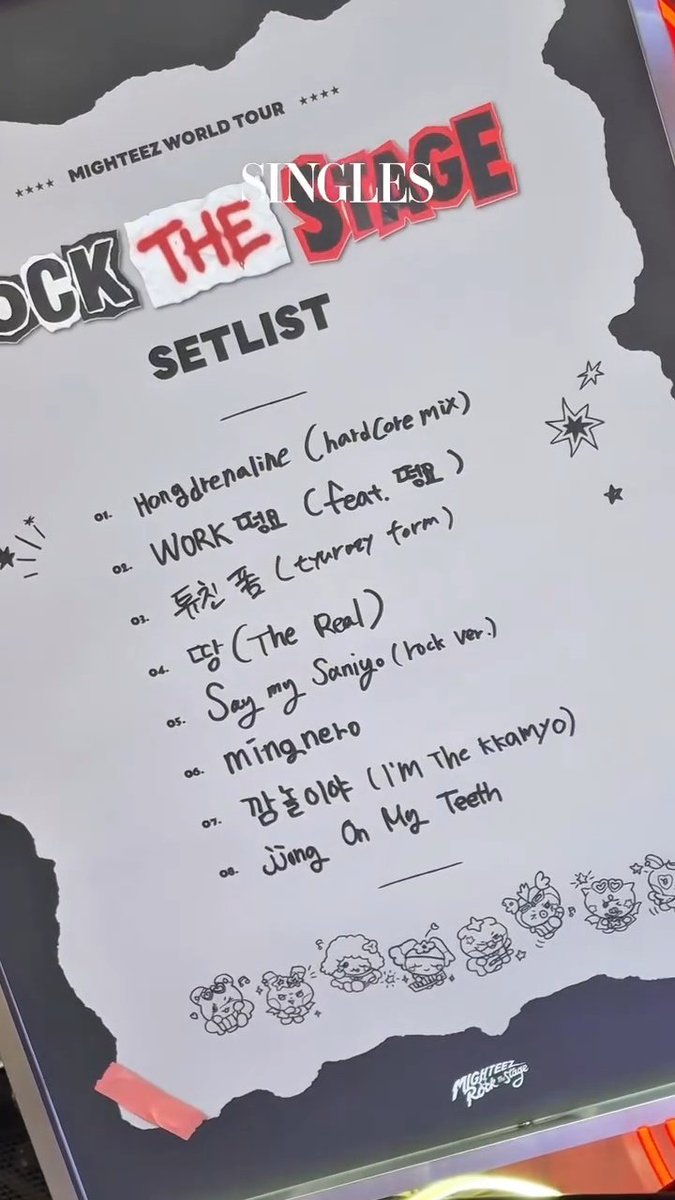 ★★★★ MIGHTEEZ WORLD TOUR ★★★★
SINGLES
OCK THE STAGE
SETLIST
01. Hongdrenaline (hardcore mix)
02. WORK 떵요 (feat. 떵요)
03. 튜친 폼 (tyuroey form)
04. 땅 (The Real)
05. Say my Saniyo (rock ver.)
06. mingnero
07. 깜놀이야 (I'm The kkamyo)
08. jjong On My Teeth
MIGHTEEZ
Rock the Stage